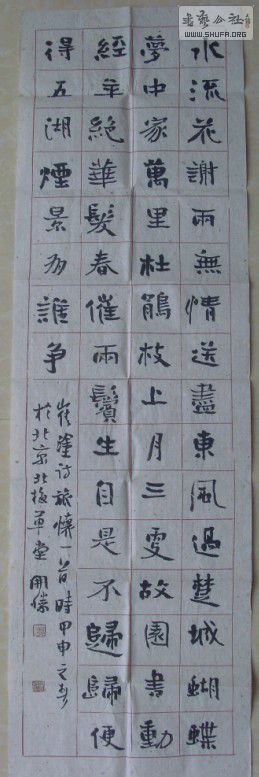 水流花謝兩無情送盡東風過楚城蝴蝶
夢中家萬里杜鵑枝上月三更故園書動
經年絕華髮春催兩鬢生自是不歸歸便
得五湖煙景有誰争
崔塗詩旅懷一首時甲申之
於北京北草堂
书艺公社
WWW.SHUFA.ORG